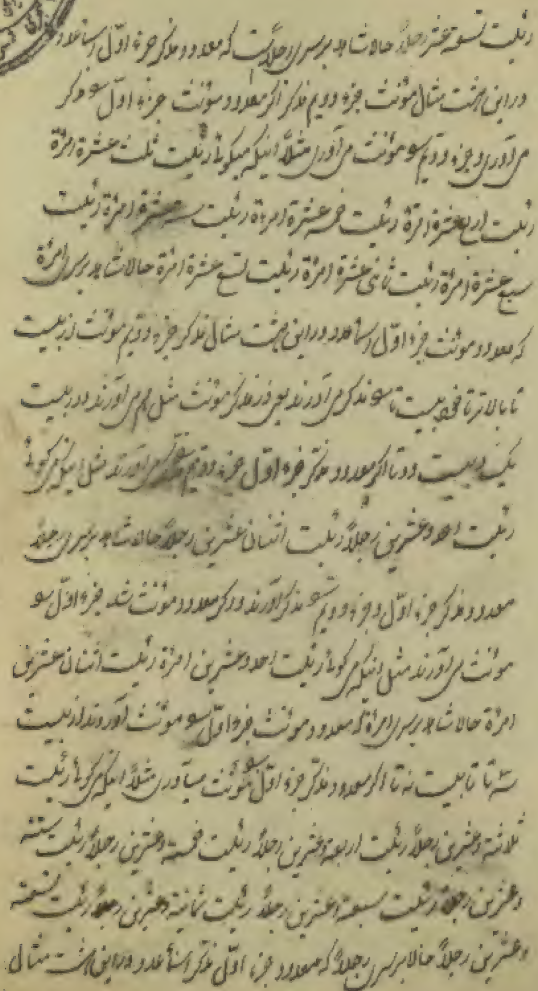 رئیت تسعه عشر رجلاً حالا شاهد بر سر رجلاً است که معدود مذکر جزء اوّل اسماء عدد
در این هشت مثال مؤنث جزء دویم مذکر اگر معدود مؤنث جزء اوّل سو مذکر
می آوری و جزء دویم سو مؤنث می آوری مثلاً اینکه میکوئ رئیت ثلث عشرة امرئة
رئیت اربع عشرة امرئة رئیت خمسه عشرة امرئة رئیت سته عشرة امرئة رئیت
سبع عشرة امرئة رئیت ثمانی عشرة امرئة رئیت تسع عشرة امرئة حالا شاهد بر سر امرئة
که معدود مؤنث جزء اوّل اسماء عدد در این هشت مثال مذکر جزء دویم مؤنث از بیست
تا بالاتر تا خود بیست تا سو مذکر می آورند یعنی در مذکر مؤنث مثل هم می آورند در بیست
یک و بیست دو تا اگر معدود مذکر جزء اوّل جزء دویم مذکر می آورند مثل اینکه می کوئ
رئیت احد و عشرین رجلاً رئیت اثنانی عشرین رجلاً حالا شاهد بر سر رجلاً
معدود مذکر جزء اوّل و جزء دویم سو مذکر آورند و اگر معدود مؤنث شد جزء اوّل سو
مؤنث می آورند مثل اینکه می کوئ رئیت احد و عشرین امرئة رئیت اثنانی عشرین
امرئة حالا شاهد بر سر امرئة که معدود مؤنث جزء اوّل سو مؤنث آوردند از بیست
سه تا تا بیست نه تا اگر معدود مذکر جزء اوّل سو مؤنث میآوری مثلاً اینکه می کوئ رئیت
ثلاثة و عشرین رجلاً رئیت اربعه و عشرین رجلاً رئیت خمسه و عشرین رجلاً رئیت سته
و عشرین رجلاً رئیت سبعه و عشرین رجلاً رئیت ثمانیة و عشرین رجلاً رئیت تسعه
و عشرین رجلاً حالا بر سر رجلاً که معدود جزء اوّل مذکر اسماء عدد در این هشت مثال